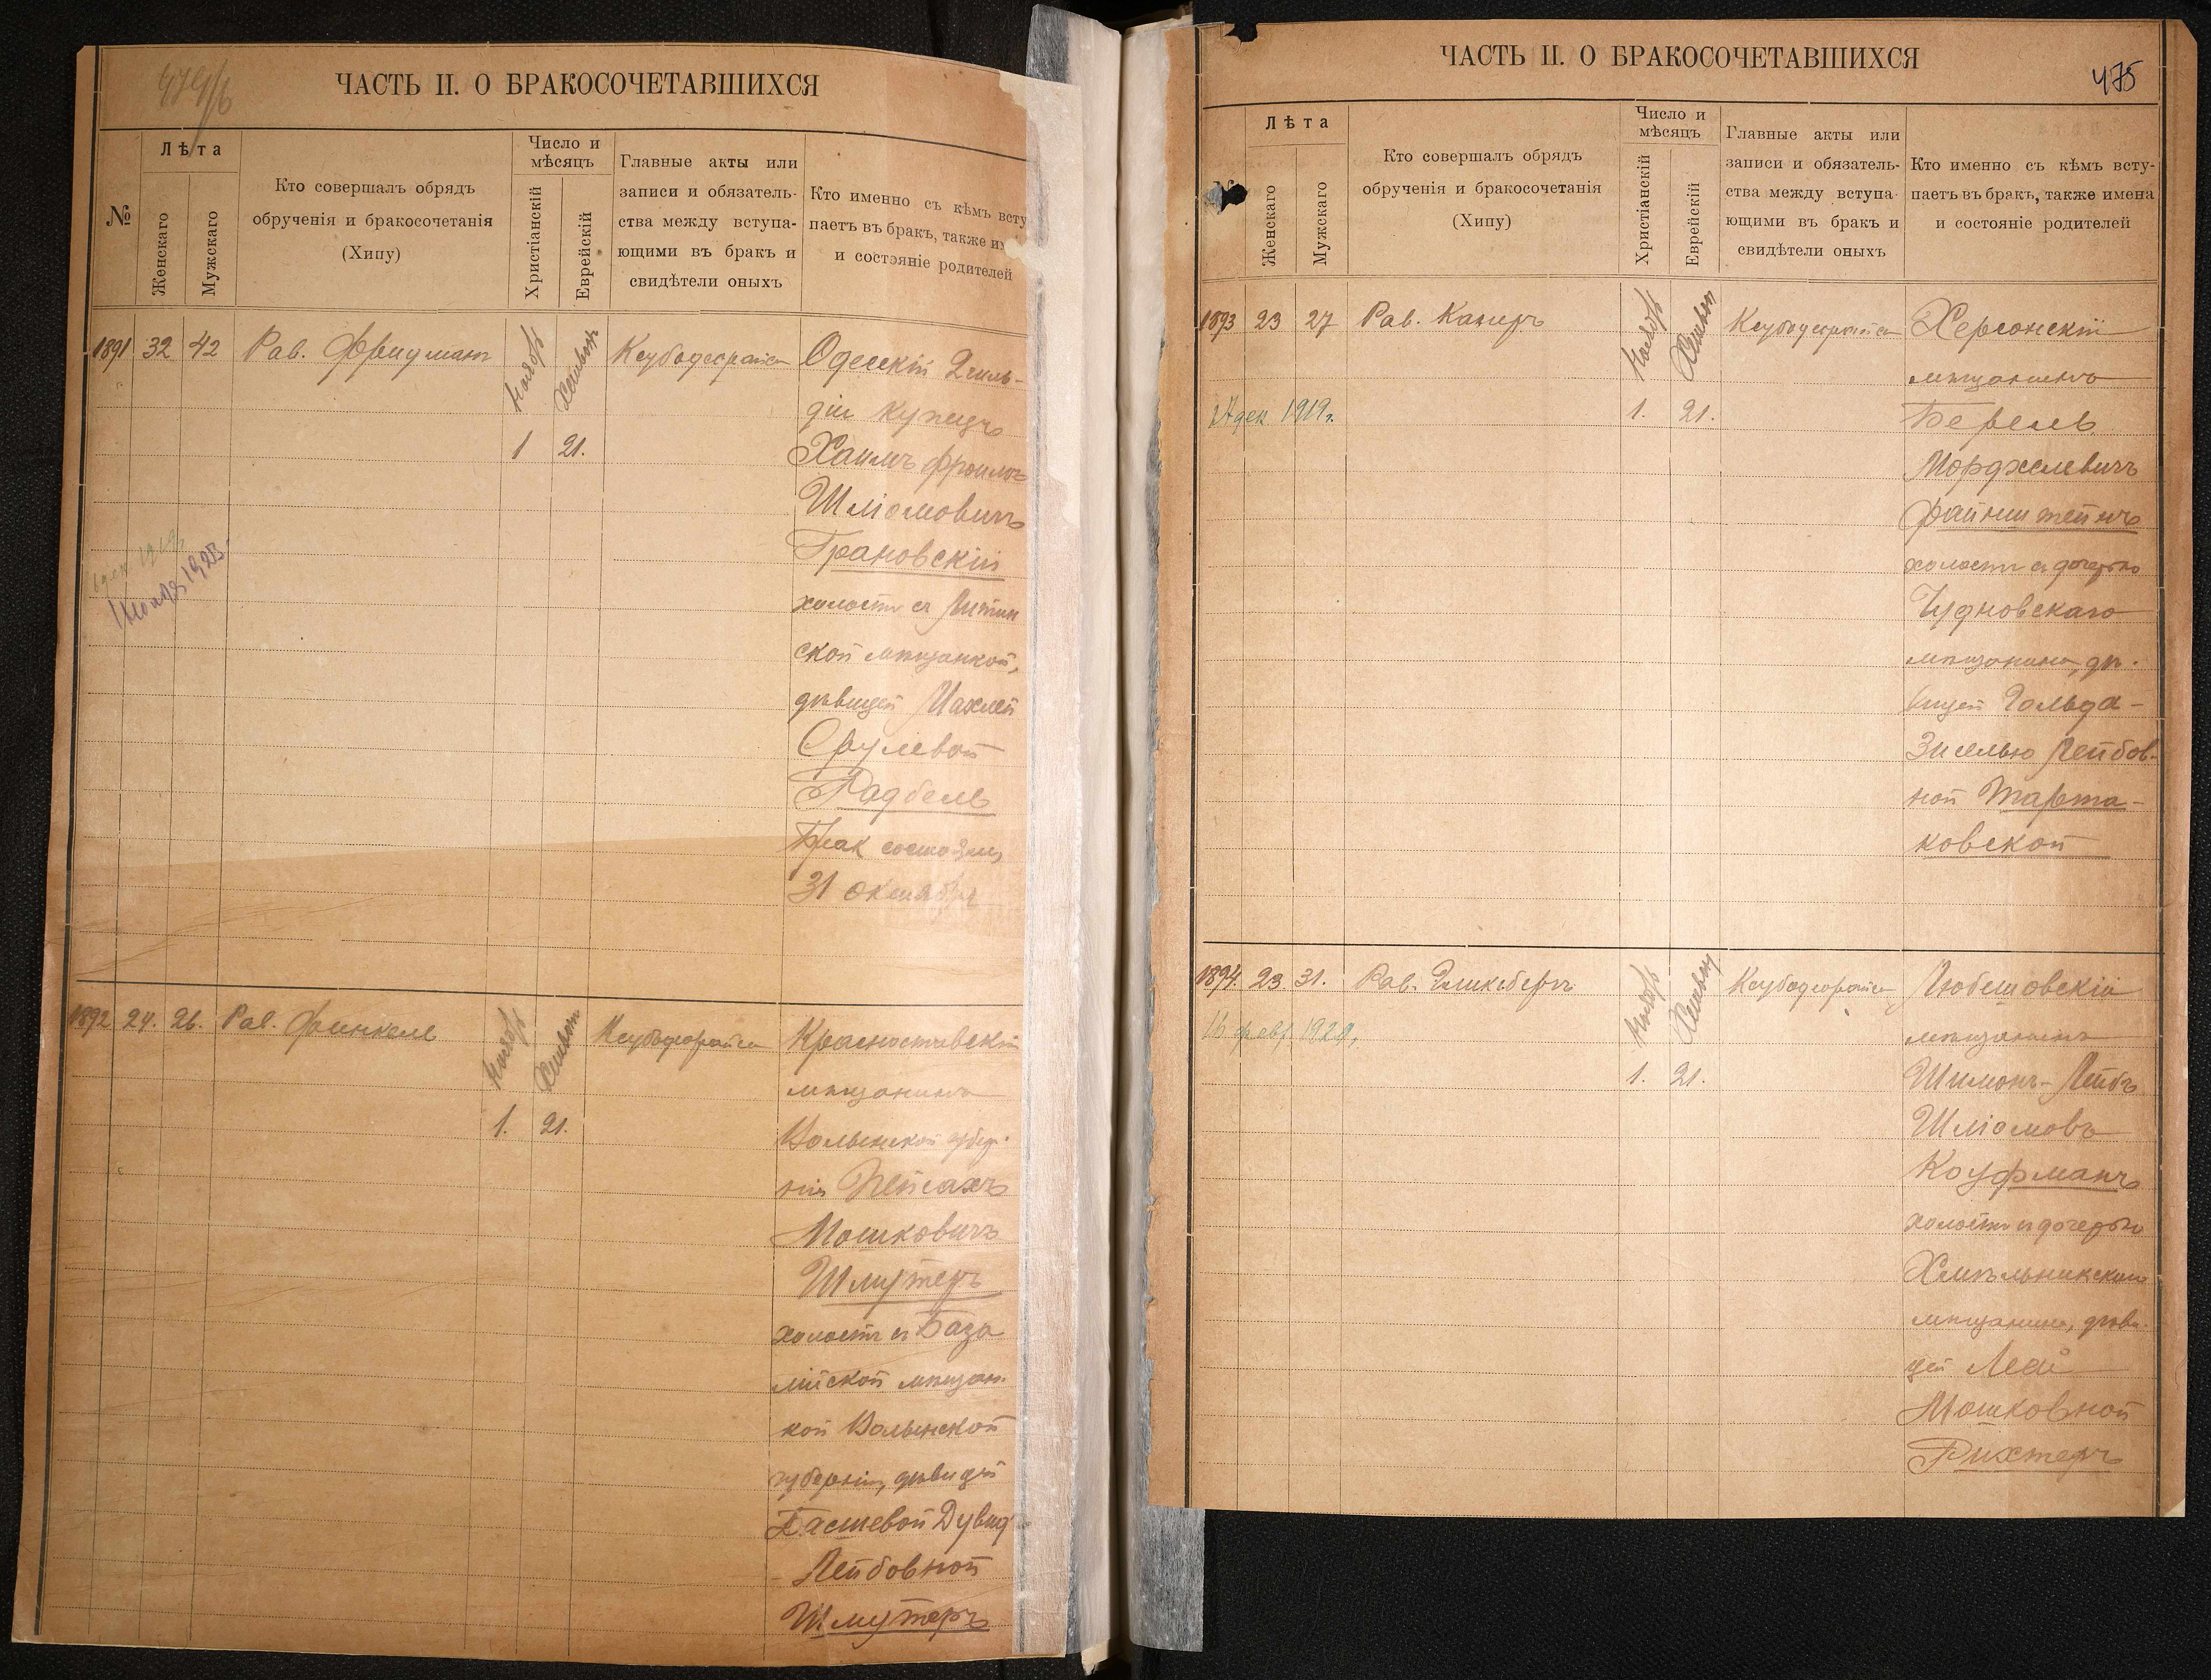 ЧАСТЬ II. О БРАКОСОЧЕТАВШИХСЯ
№
Лѣта
Женскаго
Мужскаго
Кто совершалъ обрядъ
обрученія и бракосочетанія
(Хипу)
Число и
мѣсяцъ
Христіанскій
Еврейскій
Главные акты или
записи и обязатель-
ства между вступа-
ющими въ бракъ и
свидѣтели оныхъ
Кто именно съ кѣмъ всту
паетъ въ бракъ, также и
и состояніе родителей
1891 32 42 Рав. Фридманъ
Ноябрь
Хешванъ
1 21.
Одесскій 2 гиль-
діи купецъ
Хаимъ Фроимъ
Шліомовичъ
Грановскій
холостъ съ Литин
ской мѣщанкой,
дѣвицей
Срулевой
Радбель
Бракъ состоял.
31 октября
1 ноября 1923
1892 24. 26. Рав. Финкель
Ноябрь
Хешванъ
1. 21.
Красноставскій
мѣщанинъ
Волынской губер-
ніи Пейсахъ
Мошковичъ
Шмутеръ
холостъ съ База
лійской мѣщан-
кой Волынской
губерніи, дѣвицей
Басшевой Дувид
Лейбовной
Шмутеръ
ЧАСТЬ II. О БРАКОСОЧЕТАВШИХСЯ
475
Лѣта
Женскаго
Мужскаго
Кто совершалъ обрядъ
обрученія и бракосочетанія
(Хипу)
Число и
мѣсяцъ
Христіанскій
Еврейскій
Главные акты или
записи и обязатель-
ства между вступа
ющими въ бракъ и
свидѣтели оныхъ
Кто именно съ кѣмъ всту-
паетъ въ бракъ, также имена
и состояніе родителей
1893 23 27 Рав. Камеръ
Ноябрь
Хешван
1. 21.
дек 1919г.
Херсонскій
мѣщанинъ
Берель
Мордхелевичъ
Файнштейнъ
холостъ съ дочерью
Чудновскаго
мѣщанина, дѣ-
вицей Гольда-
Зиселью Лейбов-
ной Тарта-
ковской
1894. 23 31. Рав.
Ноябрь
Хешван
1. 21.
16 февр. 1920,
Любешовскій
мѣщанинъ
Шимонъ-Лейбъ
Шліомовъ
Коуфманъ
холостъ съ дочерью
Хмѣльникскаго
мѣщанина, дѣви-
цей Леей
Мошковной
Рихтеръ